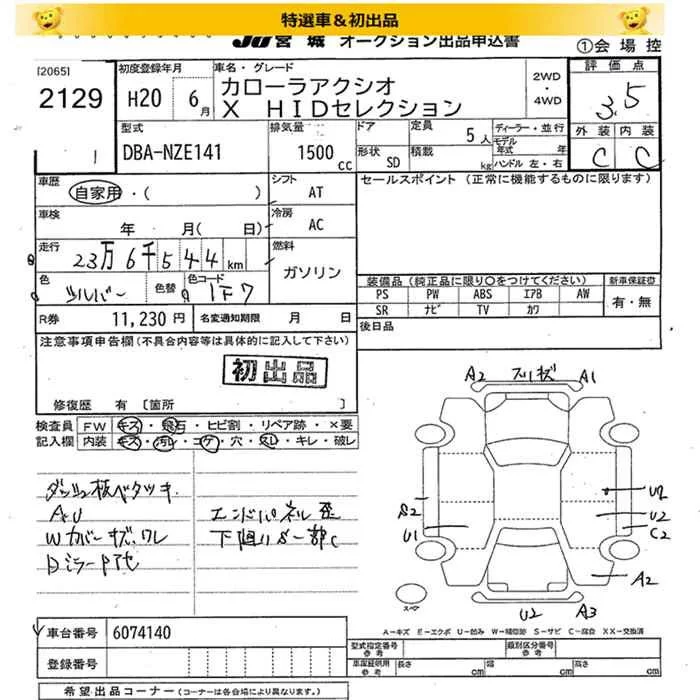 特選車＆初出品
JU宮城 オークション出品申込書
①会場控
[2065]
2129
1
初度登録年月
H20 6月
車名・グレード
カローラアクシオ
X HIDセレクション
2WD
・
4WD
評価点
3.5
外装 内装
C C
型式
DBA-NZE141
排気量
1500 cc
ドア
形状 SD
定員 5人
積載 kg
ディーラー・並行
モデル年式 年
ハンドル 左・右
車歴
自家用・( )
シフト
AT
セールスポイント (正常に機能するものに限ります)
車検
年 月( 日)
冷房
AC
走行
23万6千544km
燃料
ガソリン
色
シルバー
色替
色コード
1F7
装備品 (純正品に限り○をつけてください)
新車保証書
PS PW ABS エアB AW
SR ナビ TV カワ
有・無
R券
11,230円
名変通知期限 月 日
後日品
注意事項申告欄(不具合内容等は具体的に記入して下さい)
初出品
修復歴 有 [箇所 ]
検査員
記入欄
FW キズ・飛石・ヒビ割・リペア跡・×要
内装 キズ・汚レ・コゲ・穴・スレ・キレ・破レ
ダッシュ板ベタツキ
AU
Wカバーキズ、ワレ
Dミラー
エンドパネル歪
A2 スリキズ A1
S2
U1
U2
U2
C2
A2
U2 A3
スペア
A－キズ E－エクボ U－凹み W－補修跡 S－サビ C－腐食 XX－交換済
車台番号
6074140
登録番号
型式指定番号
参考
類別区分番号
参考
車庫証明用
参考
長さ cm
幅 cm
高さ cm
希望出品コーナー (コーナーは各会場により異なります。)